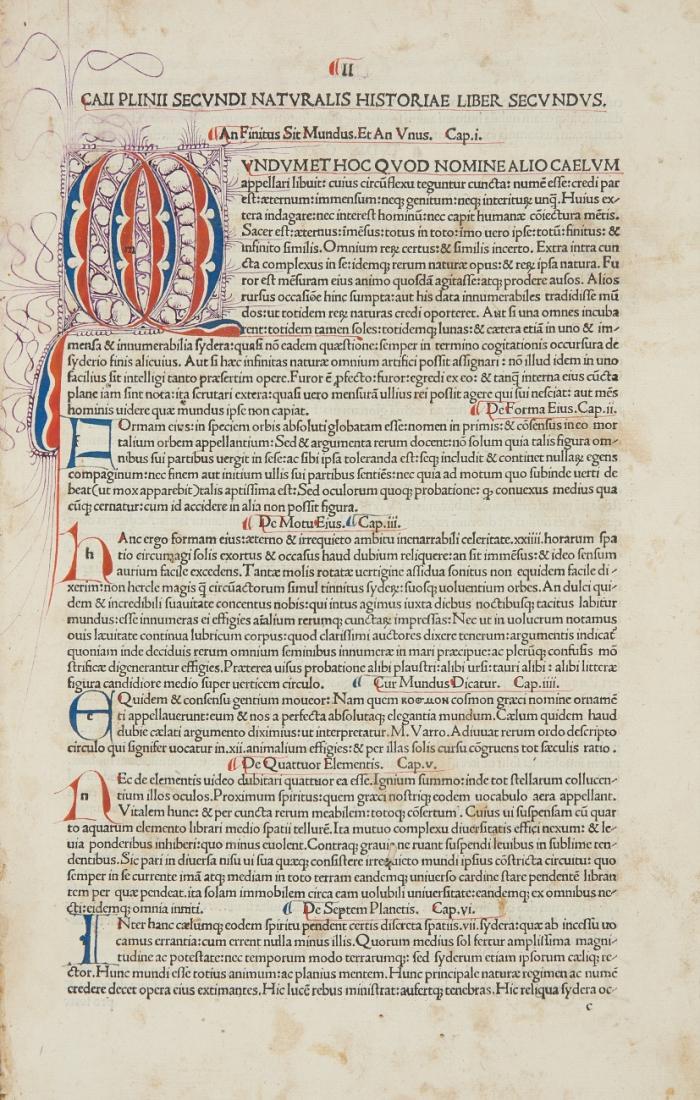 II
CAII PLINII SECVNDI NATVRALIS HISTORIAE LIBER SECVNDVS.
An Finitus Sit Mundus.Et An Vnus. Cap.i.
M VNDVM ET HOC QVOD NOMINE ALIO CAELVM
appellari libuit: cuius circūflexu teguntur cuncta: numē esse: credi par
est: æternum: immensum: neq; genitum: neq; interiturū unq̄. Huius ex-
tera indagare: nec interest hominū: nec capit humanæ cōiectura mētis.
Sacer est: æternus: īmēsus: totus in toto: imo uero ipse: totū: finitus: &
infinito similis. Omnium rerꝝ certus: & similis incerto. Extra intra cun
cta complexus in se: idemq; rerum naturæ opus: & rerꝝ ipsa natura. Fu
ror est mēsuram eius animo quosdā agitasse: atq; prodere ausos. Alios
rursus occasiōe hinc sumpta: aut his data innumerabiles tradidisse mū
dos: ut totidem rerꝝ naturas credi oporteret. Aut si una omnes incuba
rent: totidem tamen soles: totidemq; lunas: & cætera etiā in uno & im-
mensa & innumerabilia sydera: quasi nō eadem quæstione: semper in termino cogitationis occursura de
syderio finis alicuius. Aut si hæc infinitas naturæ omnium artifici possit assignari: nō illud idem in uno
facilius sit intelligi tanto præsertim opere. Furor ē ꝓfecto: furor: egredi ex eo: & tanq̄ interna eius cūcta
plane iam sint nota: ita scrutari extera: quasi uero mensurā ullius rei possit agere qui sui nesciat: aut mēs
hominis uidere quæ mundus ipse non capiat. De Forma Eius.Cap.ii.
F Ormam eius: in speciem orbis absoluti globatam esse: nomen in primis: & cōsensus in eo mor
talium orbem appellantium: Sed & argumenta rerum docent: nō solum quia talis figura om-
nibus sui partibus uergit in sese: ac sibi ipsa toleranda est: seq; includit & continet nullarꝝ egens
compaginum: nec finem aut initium ullis sui partibus sentiēs: nec quia ad motum quo subinde uerti de
beat (ut mox apparebit) talis aptissima est: Sed oculorum quoq; probatione: q̨ conuexus medius qua
cūq; cernatur: cum id accidere in alia non possit figura.
De Motu Eius. Cap.iii.
h Anc ergo formam eius: æterno & irrequieto ambitu inenarrabili celeritate.xxiiii.horarum spa
tio circumagi solis exortus & occasus haud dubium reliquere: an sit immēsus: & ideo sensum
aurium facile excedens. Tantæ molis rotatæ uertigine assidua sonitus non equidem facile di-
xerim: non hercle magis q̄ circūactorum simul tinnitus syderꝝ: suosq; uoluentium orbes. An dulci qui-
dem & incredibili suauitate concentus nobis: qui intus agimus iuxta diebus noctibusq; tacitus labitur
mundus: esse innumeras ei effigies aīalium rerumq; cunctarꝝ impressas: Nec ut in uolucrum notamus
ouis læuitate continua lubricum corpus: quod clarissimi auctores dixere tenerum: argumentis indicat᷑
quoniam inde deciduis rerum omnium seminibus innumeræ in mari præcipue: ac plerūq; confusis mō
strificæ digenerantur effigies. Præterea uisus probatione alibi plaustri: alibi ursi: tauri alibi: alibi litteræ
figura candidiore medio super uerticem circulo. Cur Mundus Dicatur. Cap.iiii.
E Quidem & consensu gentium moueor: Nam quem κοσμον cosmon græci nomine ornamē
ti appellauerunt: eum & nos a perfecta absolutaq; elegantia mundum. Cælum quidem haud
dubie cælati argumento diximus: ut interpretatur. M. Varro. Adiuuat rerum ordo descripto
circulo qui signifer uocatur in.xii.animalium effigies: & per illas solis cursu cōgruens tot sæculis ratio.
De Quattuor Elementis. Cap.v.
N Ec de elementis uideo dubitari quattuor ea esse. Ignium summo: inde tot stellarum collucen-
tium illos oculos. Proximum spiritus: quem græci nostriq; eodem uocabulo aera appellant.
Vitalem hunc: & per cuncta rerum meabilem: totoq; cōsertum. Cuius ui suspensam cū quar
to aquarum elemento librari medio spatii tellurē. Ita mutuo complexu diuersitatis effici nexum: & le-
uia ponderibus inhiberi: quo minus euolent. Contraq; grauia ne ruant suspendi leuibus in sublime ten-
dentibus. Sic pari in diuersa nisu ui sua quæq; consistere irrequieto mundi ipsius cōstricta circuitu: quo
semper in se currente imā atq; mediam in toto terram eandemq; uniuerso cardine stare pendentē libran
tem per quæ pendeat. ita solam immobilem circa eam uolubili uniuersitate: eandemq; ex omnibus ne-
cti: eidemq; omnia inniti. De Septem Planetis. Cap.vi.
I Nter hanc cælumq; eodem spiritu pendent certis discreta spatiis.vii.sydera: quæ ab incessu uo
camus errantia: cum errent nulla minus illis. Quorum medius sol fertur amplissima magni-
tudine ac potestate: nec temporum modo terratumq;: sed syderum etiam ipsorum cæliq; re-
ctor. Hunc mundi esse totius animum: ac planius mentem. Hunc principale naturæ regimen ac numē
credere decet opera eius extimantes. Hic lucē rebus ministrat: aufertq; tenebras. Hic reliqua sydera oc-
c